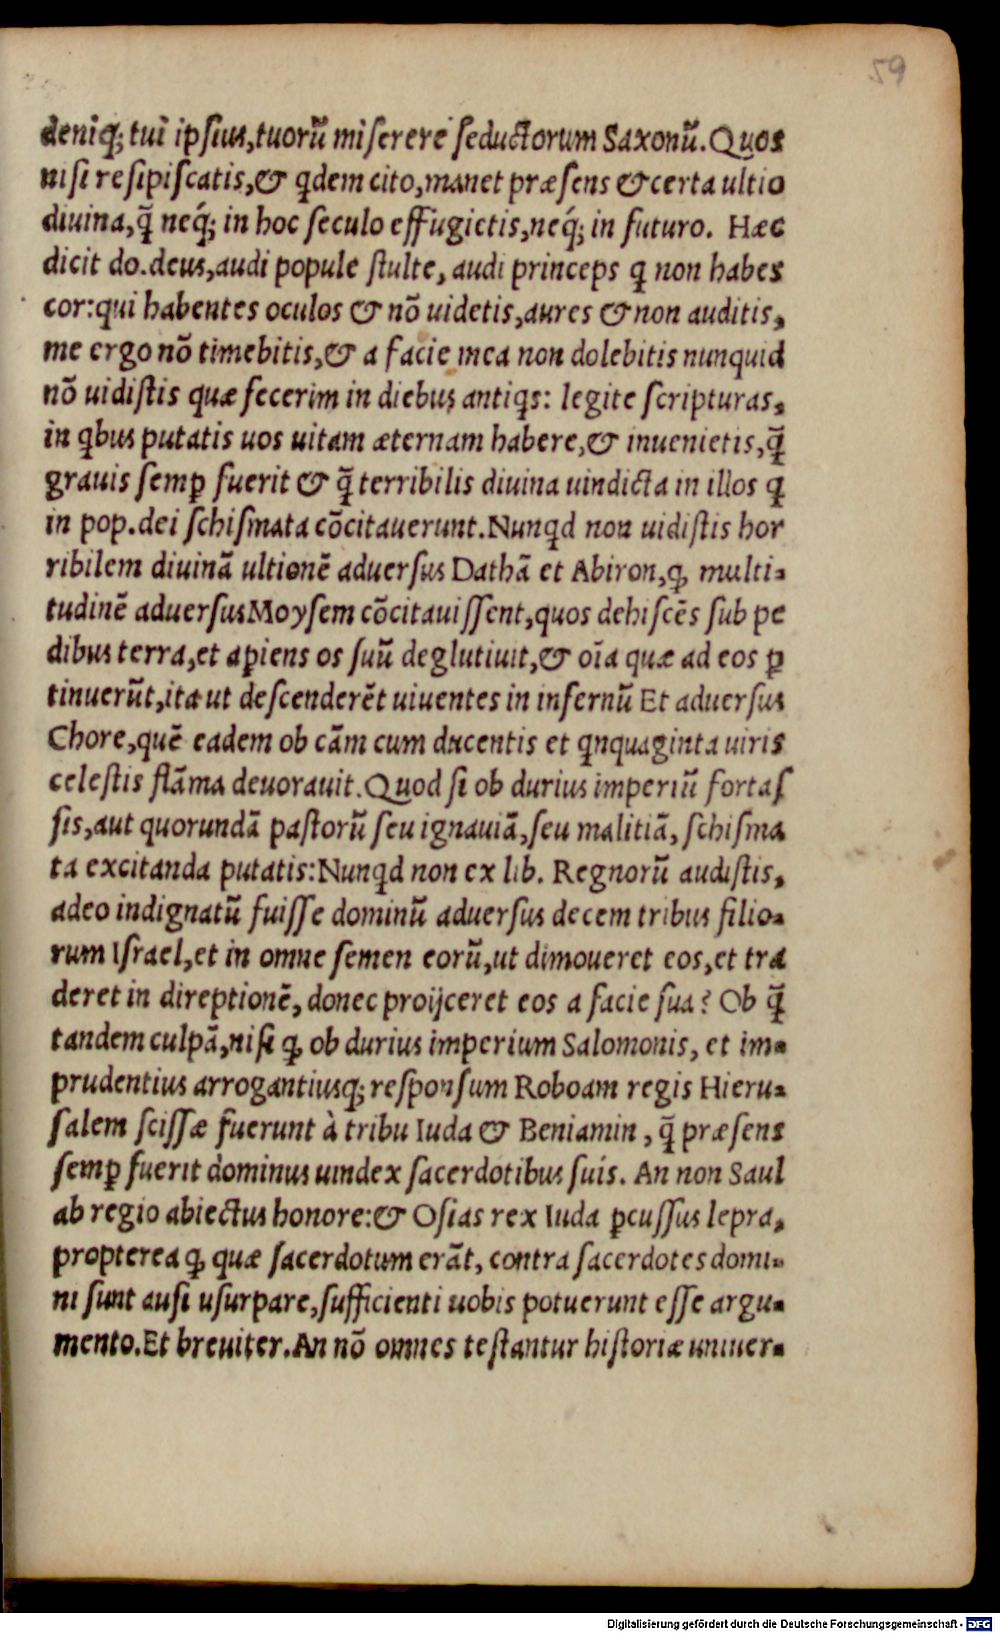 59
deniq; tui ipsius, tuorū miserere seductorum Saxonū. Quos
nisi resipiscatis, & qdem cito, manet præsens & certa ultio
diuina, q̃ neq́; in hoc seculo effugietis, neq́; in futuro. Hæc
dicit do. deus, audi popule stulte, audi princeps q non habes
cor: qui habentes oculos & nõ uidetis, aures & non auditis,
me ergo nõ timebitis, & a facie mea non dolebitis nunquid
nõ uidistis quæ fecerim in diebus antiqs: legite scripturas,
in qbus putatis uos uitam æternam habere, & inuenietis, q̃
grauis semꝑ fuerit & q̃ terribilis diuina uindicta in illos q
in pop. dei schismata cõcitauerunt. Nunqd non uidistis hor
ribilem diuinã ultionẽ aduersus Dathã et Abiron, ꝙ multi-
tudinẽ aduersus Moysem cõcitauissent, quos dehiscẽs sub pe
dibus terra, et aꝑiens os suũ deglutiuit, & oĩa quæ ad eos ꝑ
tinuerũt, ita ut descenderẽt uiuentes in infernũ Et aduersus
Chore, quẽ eadem ob cãm cum ducentis et qnquaginta uiris
celestis flãma deuorauit. Quod si ob durius imperiũ fortas
sis, aut quorundã pastorũ seu ignauiã, seu malitiã, schisma
ta excitanda putatis: Nunqd non ex lib. Regnorũ audistis,
adeo indignatũ fuisse dominũ aduersus decem tribus filio-
rum Israel, et in omne semen eorũ, ut dimoueret eos, et tra
deret in direptionẽ, donec proijceret eos a facie sua? Ob q̃
tandem culpã, nisi ꝙ ob durius imperium Salomonis, et im-
prudentius arrogantiusq; responsum Roboam regis Hieru-
salem scissæ fuerunt à tribu Iuda & Beniamin, q̃ præsens
semꝑ fuerit dominus uindex sacerdotibus suis. An non Saul
ab regio abiectus honore: & Osias rex Iuda ꝑcussus lepra,
propterea ꝙ quæ sacerdotum erãt, contra sacerdotes domi-
ni sunt ausi usurpare, sufficienti uobis potuerunt esse argu-
mento. Et breuiter. An nõ omnes testantur historiæ uniuer-
Digitalisierung gefördert durch die Deutsche Forschungsgemeinschaft - DFG